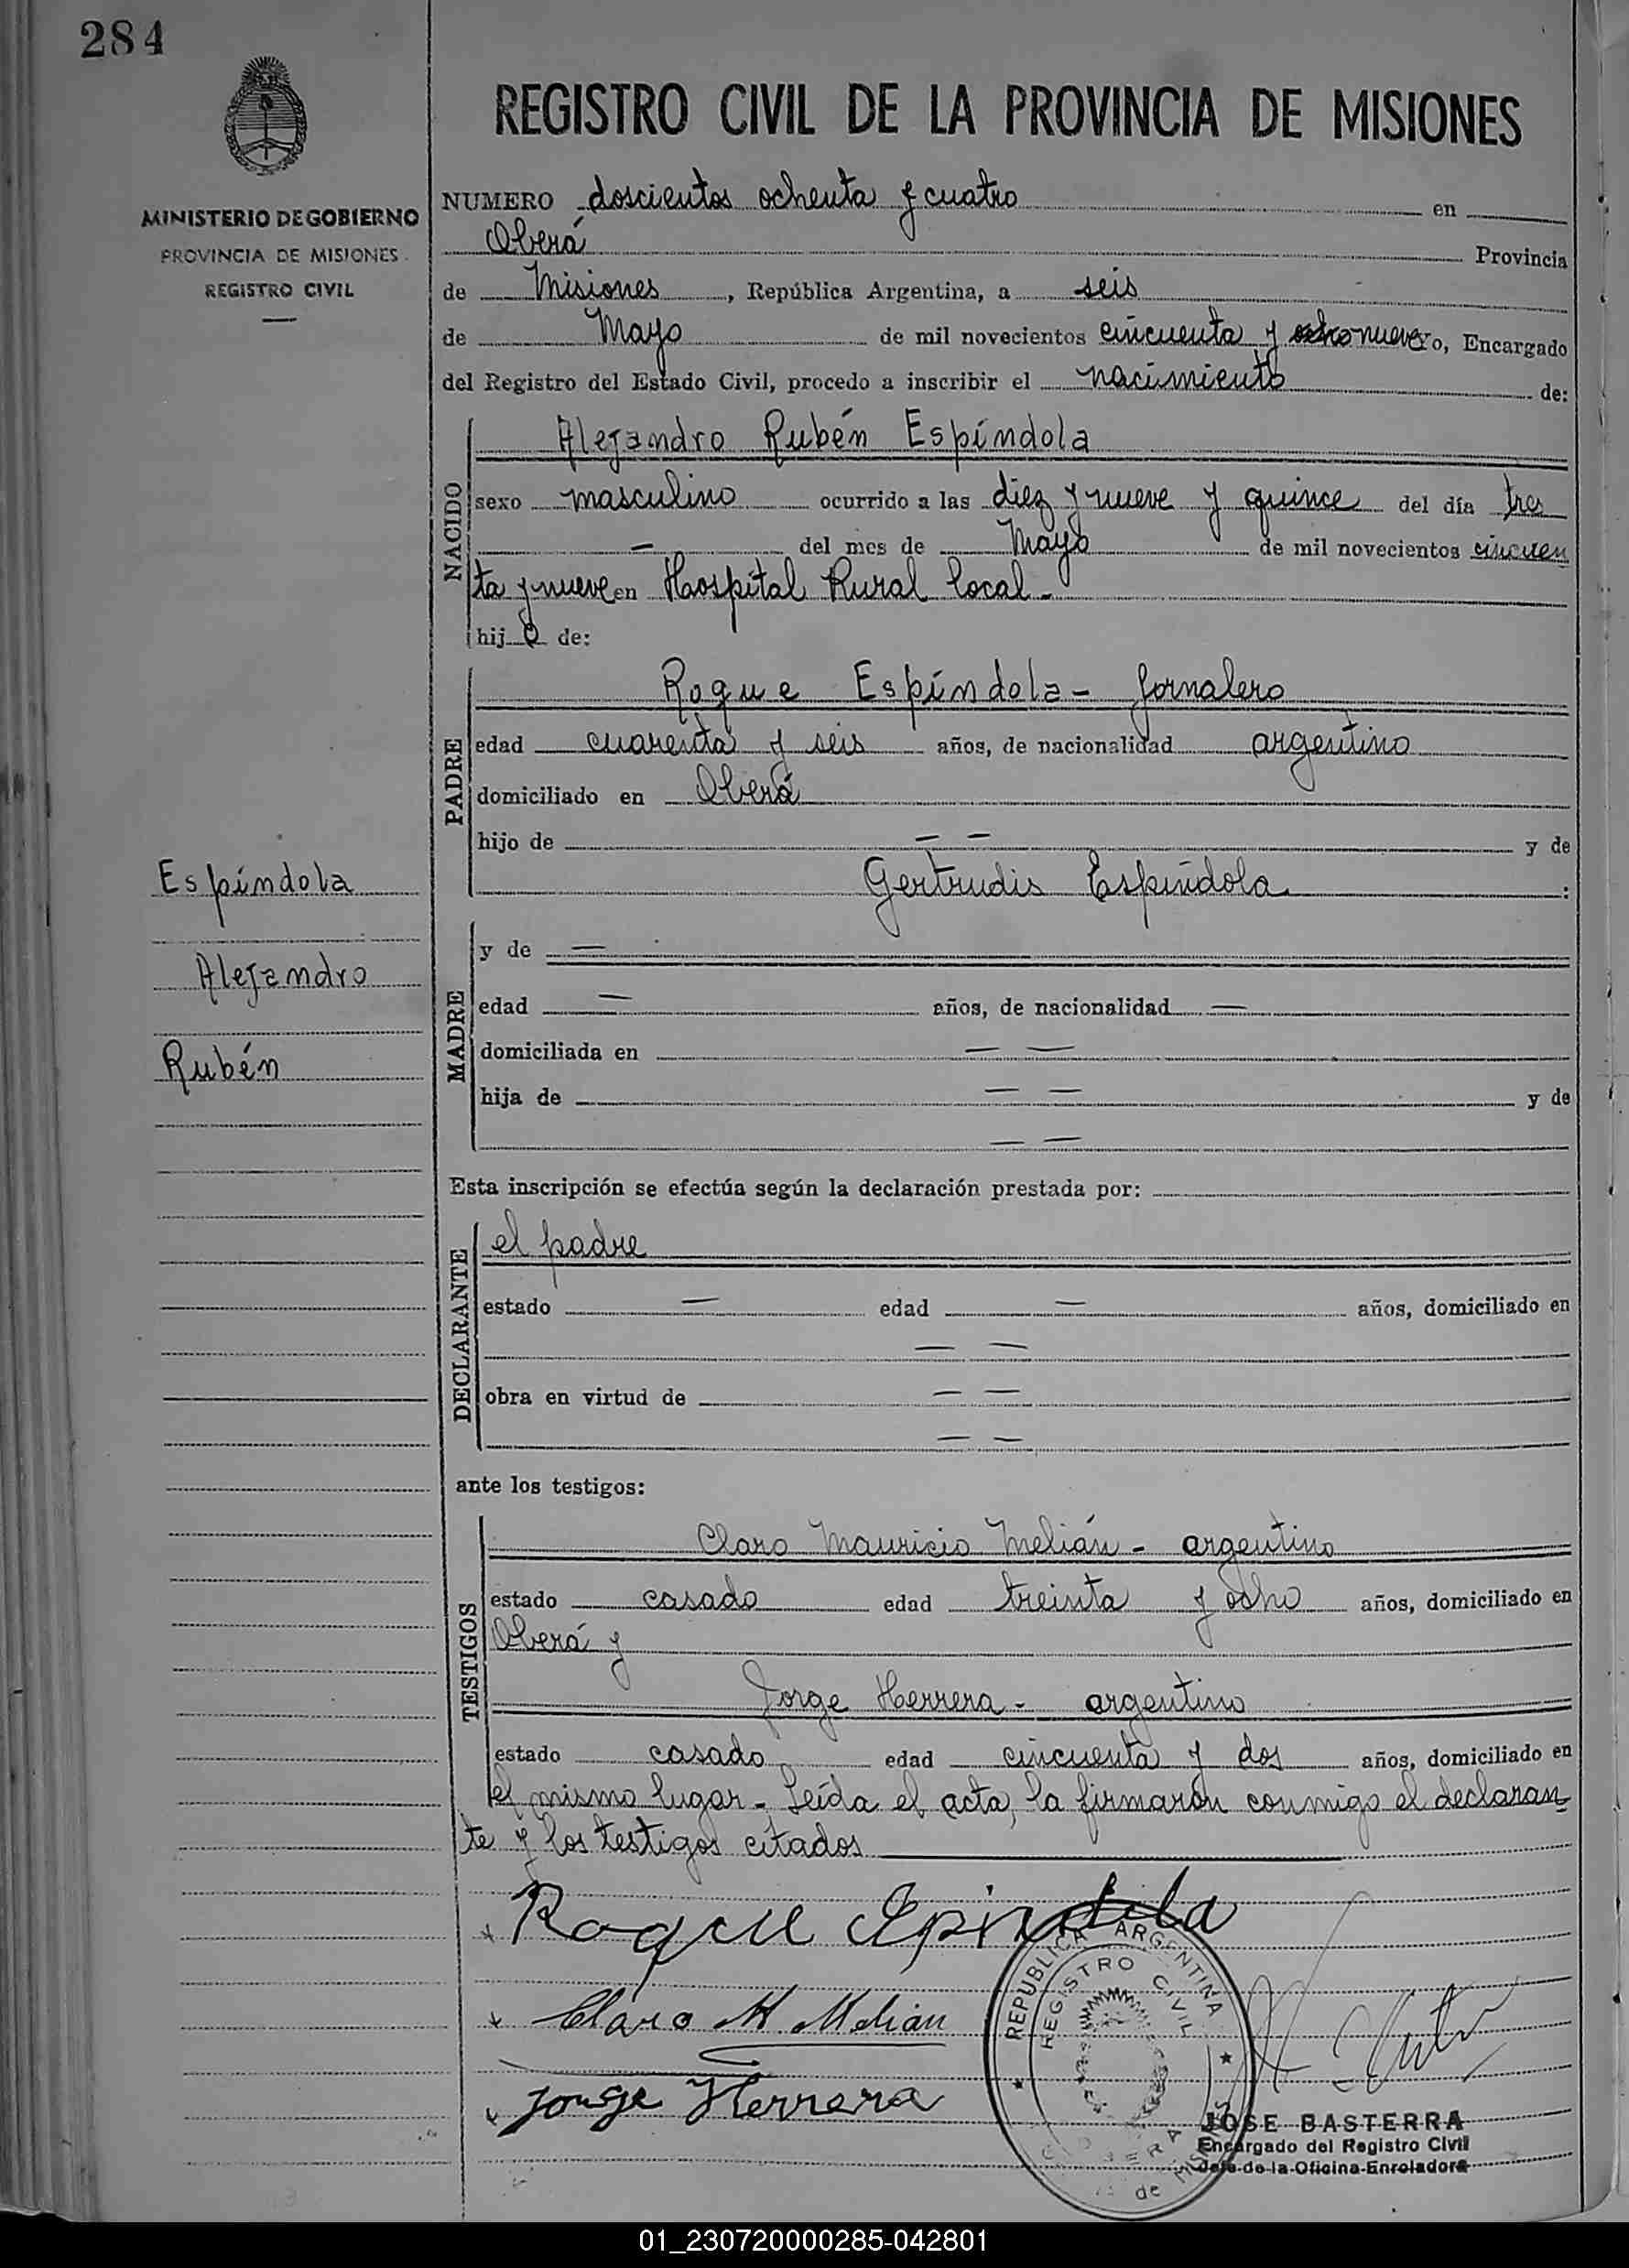 284
REGISTRO CIVIL DE LA PROVINCIA DE MISIONES
MINISTERIO DE GOBIERNO
PROVINCIA DE MISIONES
REGISTRO CIVIL
NUMERO doscientos ochenta y cuatro en
Oberá Provincia
de Misiones, República Argentina, a seis
de Mayo de mil novecientos cincuenta y ocho nueve yo, Encargado
del Registro del Estado Civil, procedo a inscribir el nacimiento de:
NACIDO
Alejandro Rubén Espíndola
sexo masculino ocurrido a las diez y nueve y quince del día tres
— del mes de Mayo de mil novecientos cincuen
ta y nueve en Hospital Rural local-
hijo de:
PADRE
Roque Espíndola - Jornalero
edad cuarenta y seis años, de nacionalidad argentino
domiciliado en Oberá
hijo de — — y de
Gertrudis Espíndola :
Espíndola
Alejandro
Rubén
MADRE
y de —
edad — años, de nacionalidad —
domiciliada en — —
hija de — — y de
— —
Esta inscripción se efectúa según la declaración prestada por:
DECLARANTE
el padre
estado — edad — años, domiciliado en
— —
obra en virtud de — —
— —
ante los testigos:
TESTIGOS
Claro Mauricio Melián - argentino
estado casado edad treinta y ocho años, domiciliado en
Oberá y
Jorge Herrera - argentino
estado casado edad cincuenta y dos años, domiciliado en
el mismo lugar - Leída el acta, la firmaron conmigo el declaran
te y los testigos citados
Roque Espindola
Claro M Melián
Jorge Herrera
REPUBLICA ARGENTINA
REGISTRO CIVIL
JOSE BASTERRA
Encargado del Registro Civil
Jefe de la Oficina Enroladora
01_230720000285-042801